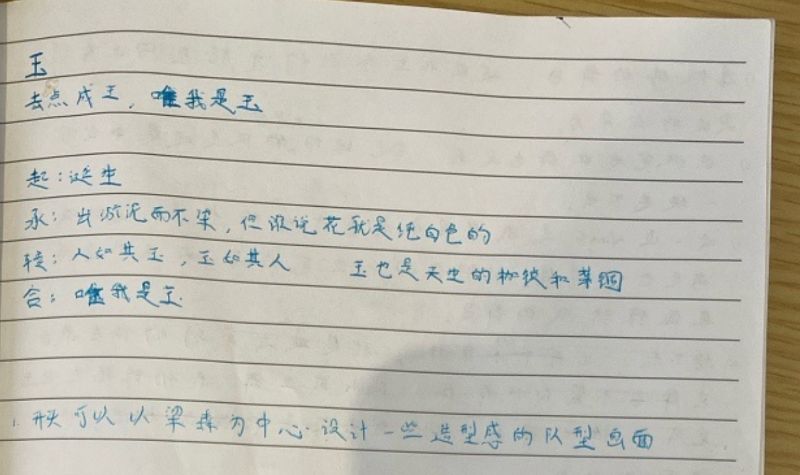 玉
去点成王，唯我是玉
起：诞生
承：出淤泥而不染，但谁说花我是纯白色的
转：人如其玉，玉如其人 玉也是天生的枷锁和
合：唯我是玉
1. 开头可以以梁森为中心设计一些造型感的队型画面